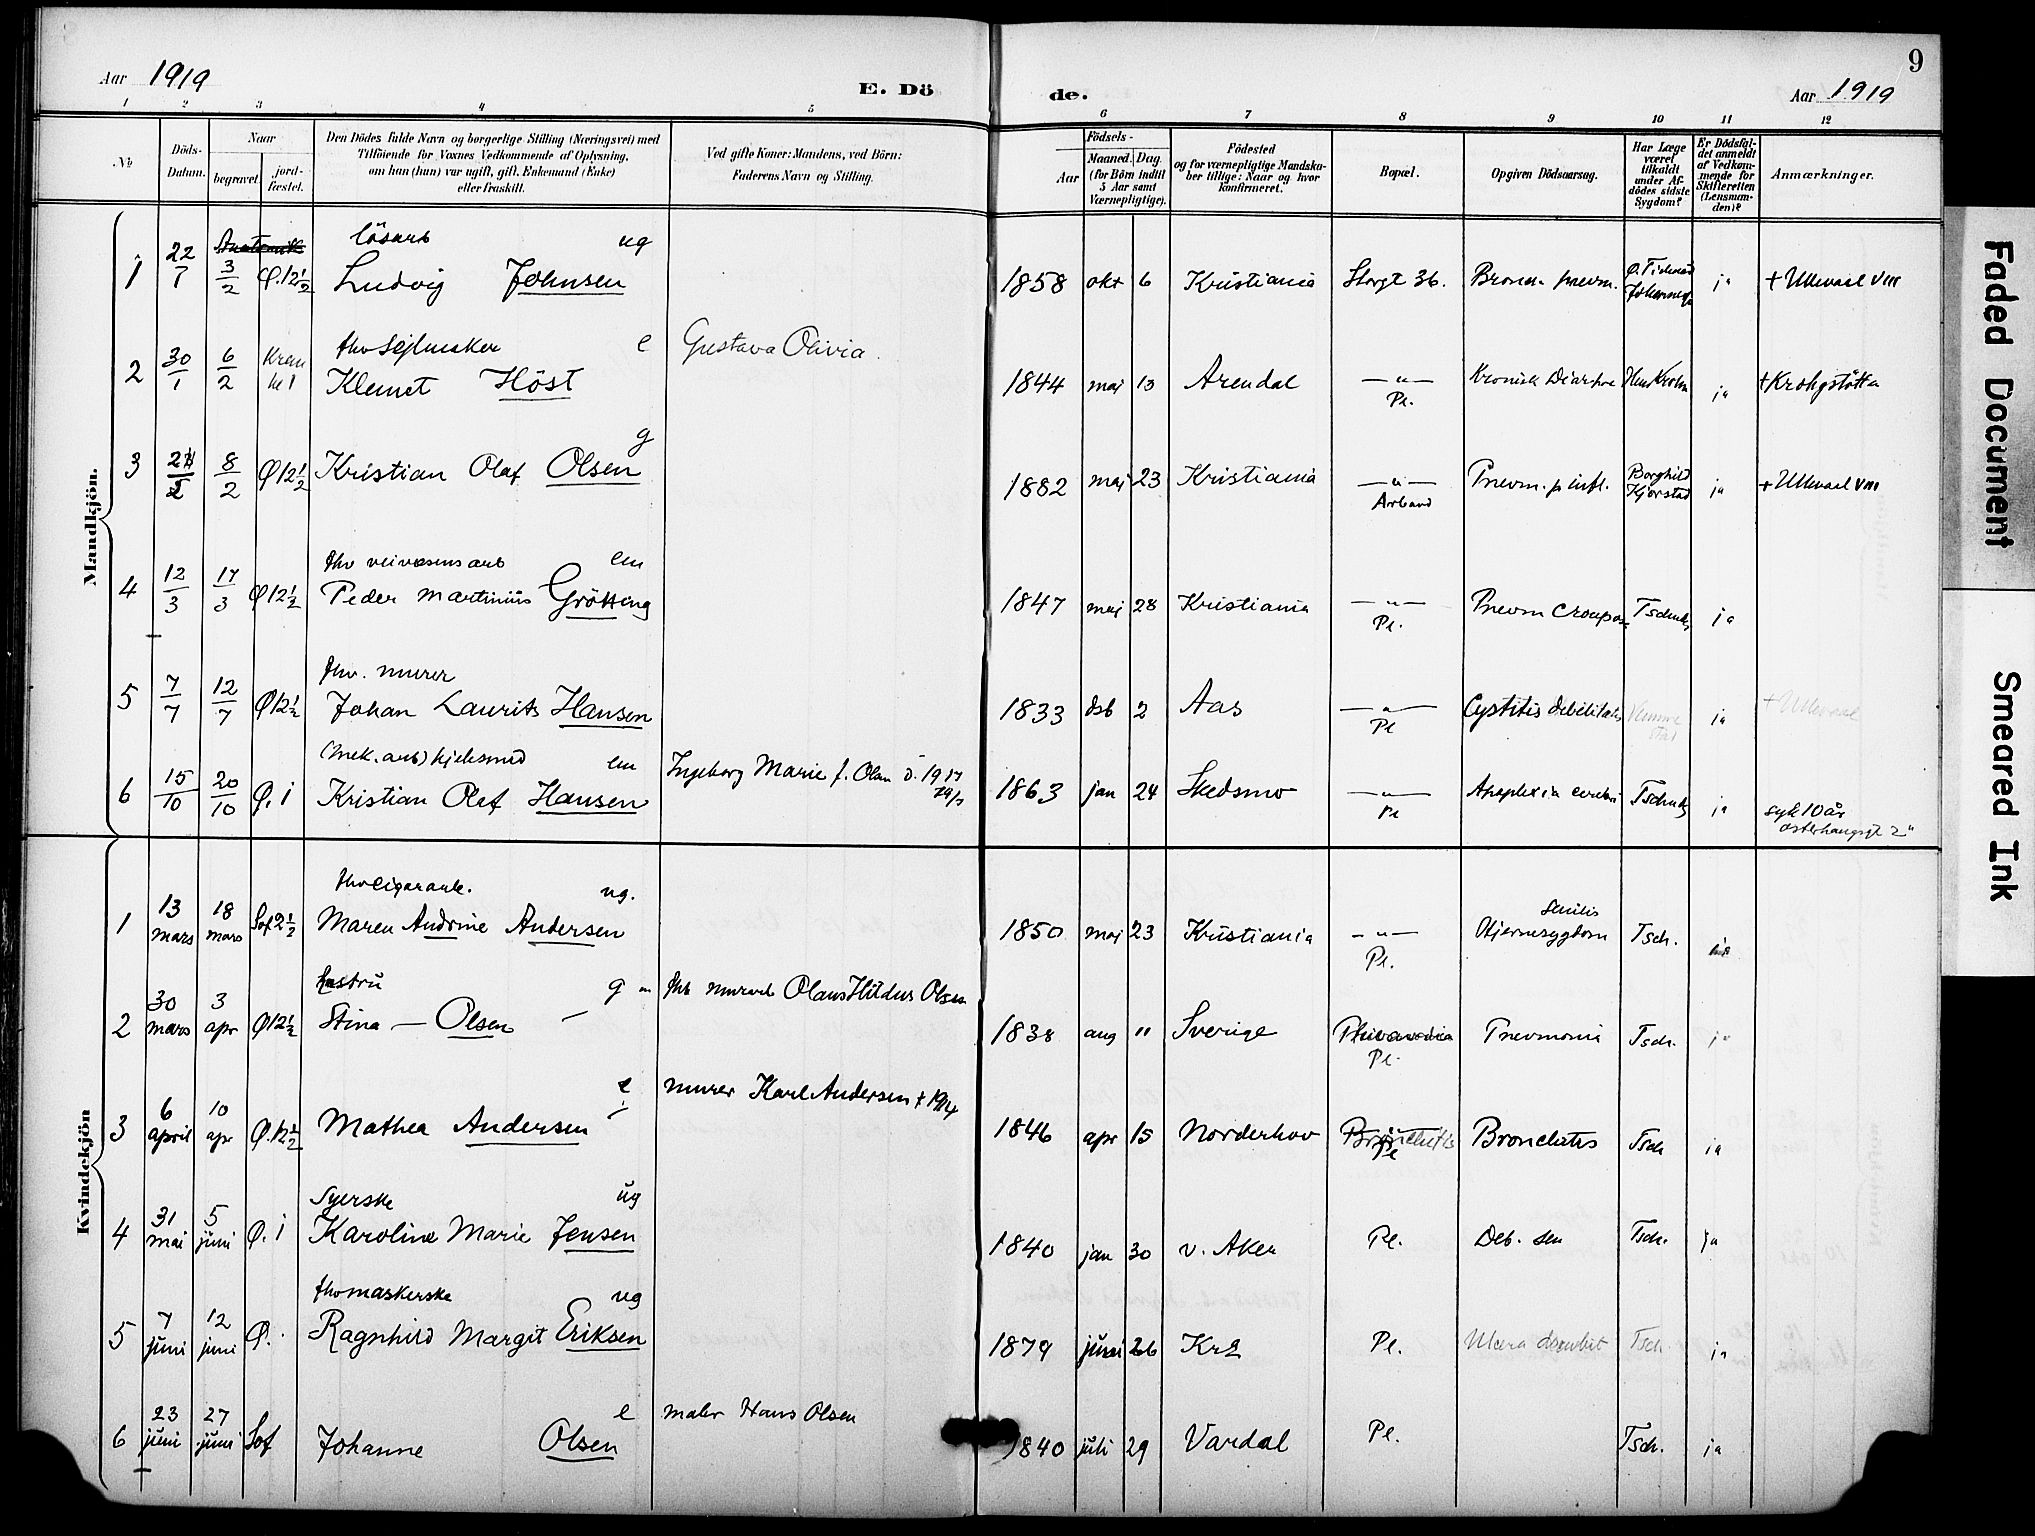 Aar 1919
E. Dö
de.
9
Aar 1919
1 2 3 4 5 6 7 8 9 10 11 12
No
Döds-Datum.
Naar
begravet.
jord-fæstet.
Den Dödes fulde Navn og borgerlige Stilling (Næringsvei) med
Tilföiende for Voxnes Vedkommende af Oplysning,
om han (hun) var ugift, gift, Enkemand (Enke)
eller fraskilt.
Ved gifte Koner: Mandens, ved Börn:
Faderens Navn og Stilling.
Födsels-
Aar
Maaned. Dag.
(for Börn indtil
5 Aar samt
Værnepligtige).
Födested
og for værnepligtige Mandska-
ber tillige: Naar og hvor
konfirmeret.
Bopæl.
Opgiven Dödsaarsag.
Har Læge
været
tilkaldt
under Af-
dödes sidste
Sygdom?
Er Dödsfal-
det anmeldt
af Vedkom-
mende for
Skifteretten
(Lensman-
den)?
Anmærkninger.
Mandkjön.
lösarb ug
1 22/7 3/2 Ø.12½ Ludvig Johnsen 1858 okt 6 Kristiania Storgt 36. pnevm. ja + Ullevaal VIII
fhv Sejlmaker e Gustava Olivia
2 30/1 6/2 Klemet Höst 1844 maj 13 Arendal —"— Pl. Kronisk Diarhoe ja + Krohgstötten
g
3 8/2 Ø12½ Kristian Olaf Olsen 1882 maj 23 Kristiania —"— Pnevm. p infl. Borghild Kjorstad ja + Ullevaal VIII
fhv veivæsens arb em
4 12/3 17/3 Ø12½ Peder Martinius Grötting 1847 maj 28 Kristiania —"— Pl. Pnevm Croupos ja
fhv. murer
5 7/7 12/7 Ø12½ Johan Laurits Hansen 1833 dsb 2 Aas —"— Pl Cystitis debilitas ja + Ullevaal
(mek. arb) kjelsmed em Ingeborg Marie f. Olsn 1917
6 15/10 20/10 Ø. 1 Kristian Olaf Hansen 1863 jan 24 Skedsmo —"— Pl Apoplexia cerebri ja syk 10 år
Kvindekjön
fhv cigararb. ug.
1 13 mars 18 mars Sof 2½ Maren Andrine Andersen 1850 maj 23 Kristiania —"— Pl. Senilis Hjernesygdom Tsch. ja
Hustru g fhv murarb Olaus Hildus Olsen
2 30 mars 3 apr Ø12½ Stina — Olsen 1838 aug 11 Sverige Pl. Pnevmonia Tsch. ja
e murer Karl Andersen + 1914
3 6 april 10 apr Ø.12½ Mathea Andersen 1846 apr 15 Norderhov Bronchitis Pl Bronchitis Tsch ja
Syerske ug
4 31 mai 5 juni Ø. 1 Karoline Marie Jensen 1840 jan 30 v. Aker Pl. Deb. sen Tsch. ja
fhv maskerske ug
5 7 juni 12 juni Ø. Ragnhild Margit Eriksen 1879 juni 26 Kra Pl. Tsch. ja
e maler Hans Olsen
6 23 juni 27 juni Sof Johanne Olsen 1840 juli 29 Vardal Pl. Tsch. ja
Faded Document
Smeared Ink